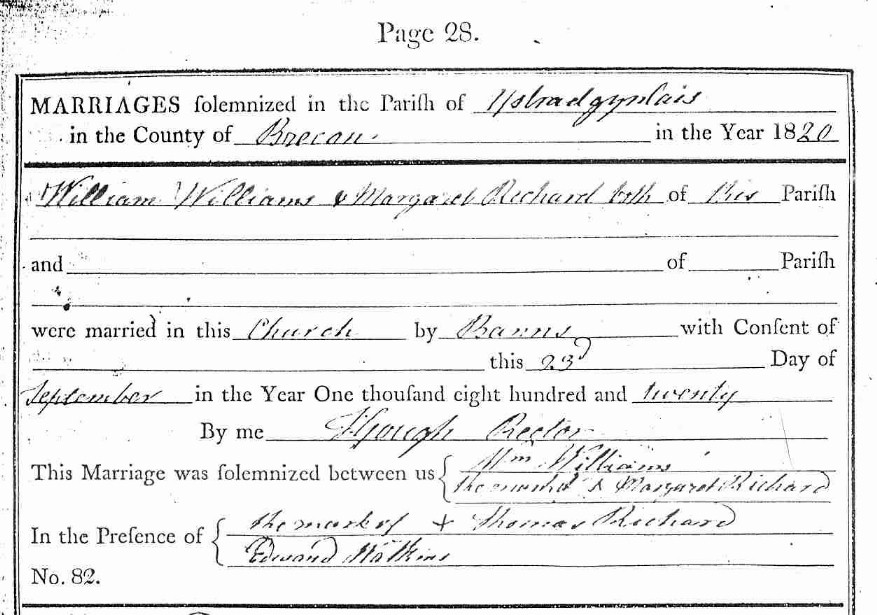 Page 28.
MARRIAGES ſolemnized in the Pariſh of Ystradgynlais
in the County of Brecon in the Year 1820
William Williams & Margaret Richard both of this Pariſh
and of Pariſh
were married in this Church by Banns with Conſent of
this 23d Day of
September in the Year One thouſand eight hundred and twenty
By me Gough Rector
This Marriage was ſolemnized between us Wm Williams
the mark of X Margaret Richard
In the Preſence of the mark of + Thomas Richard
Edward Watkins
No. 82.